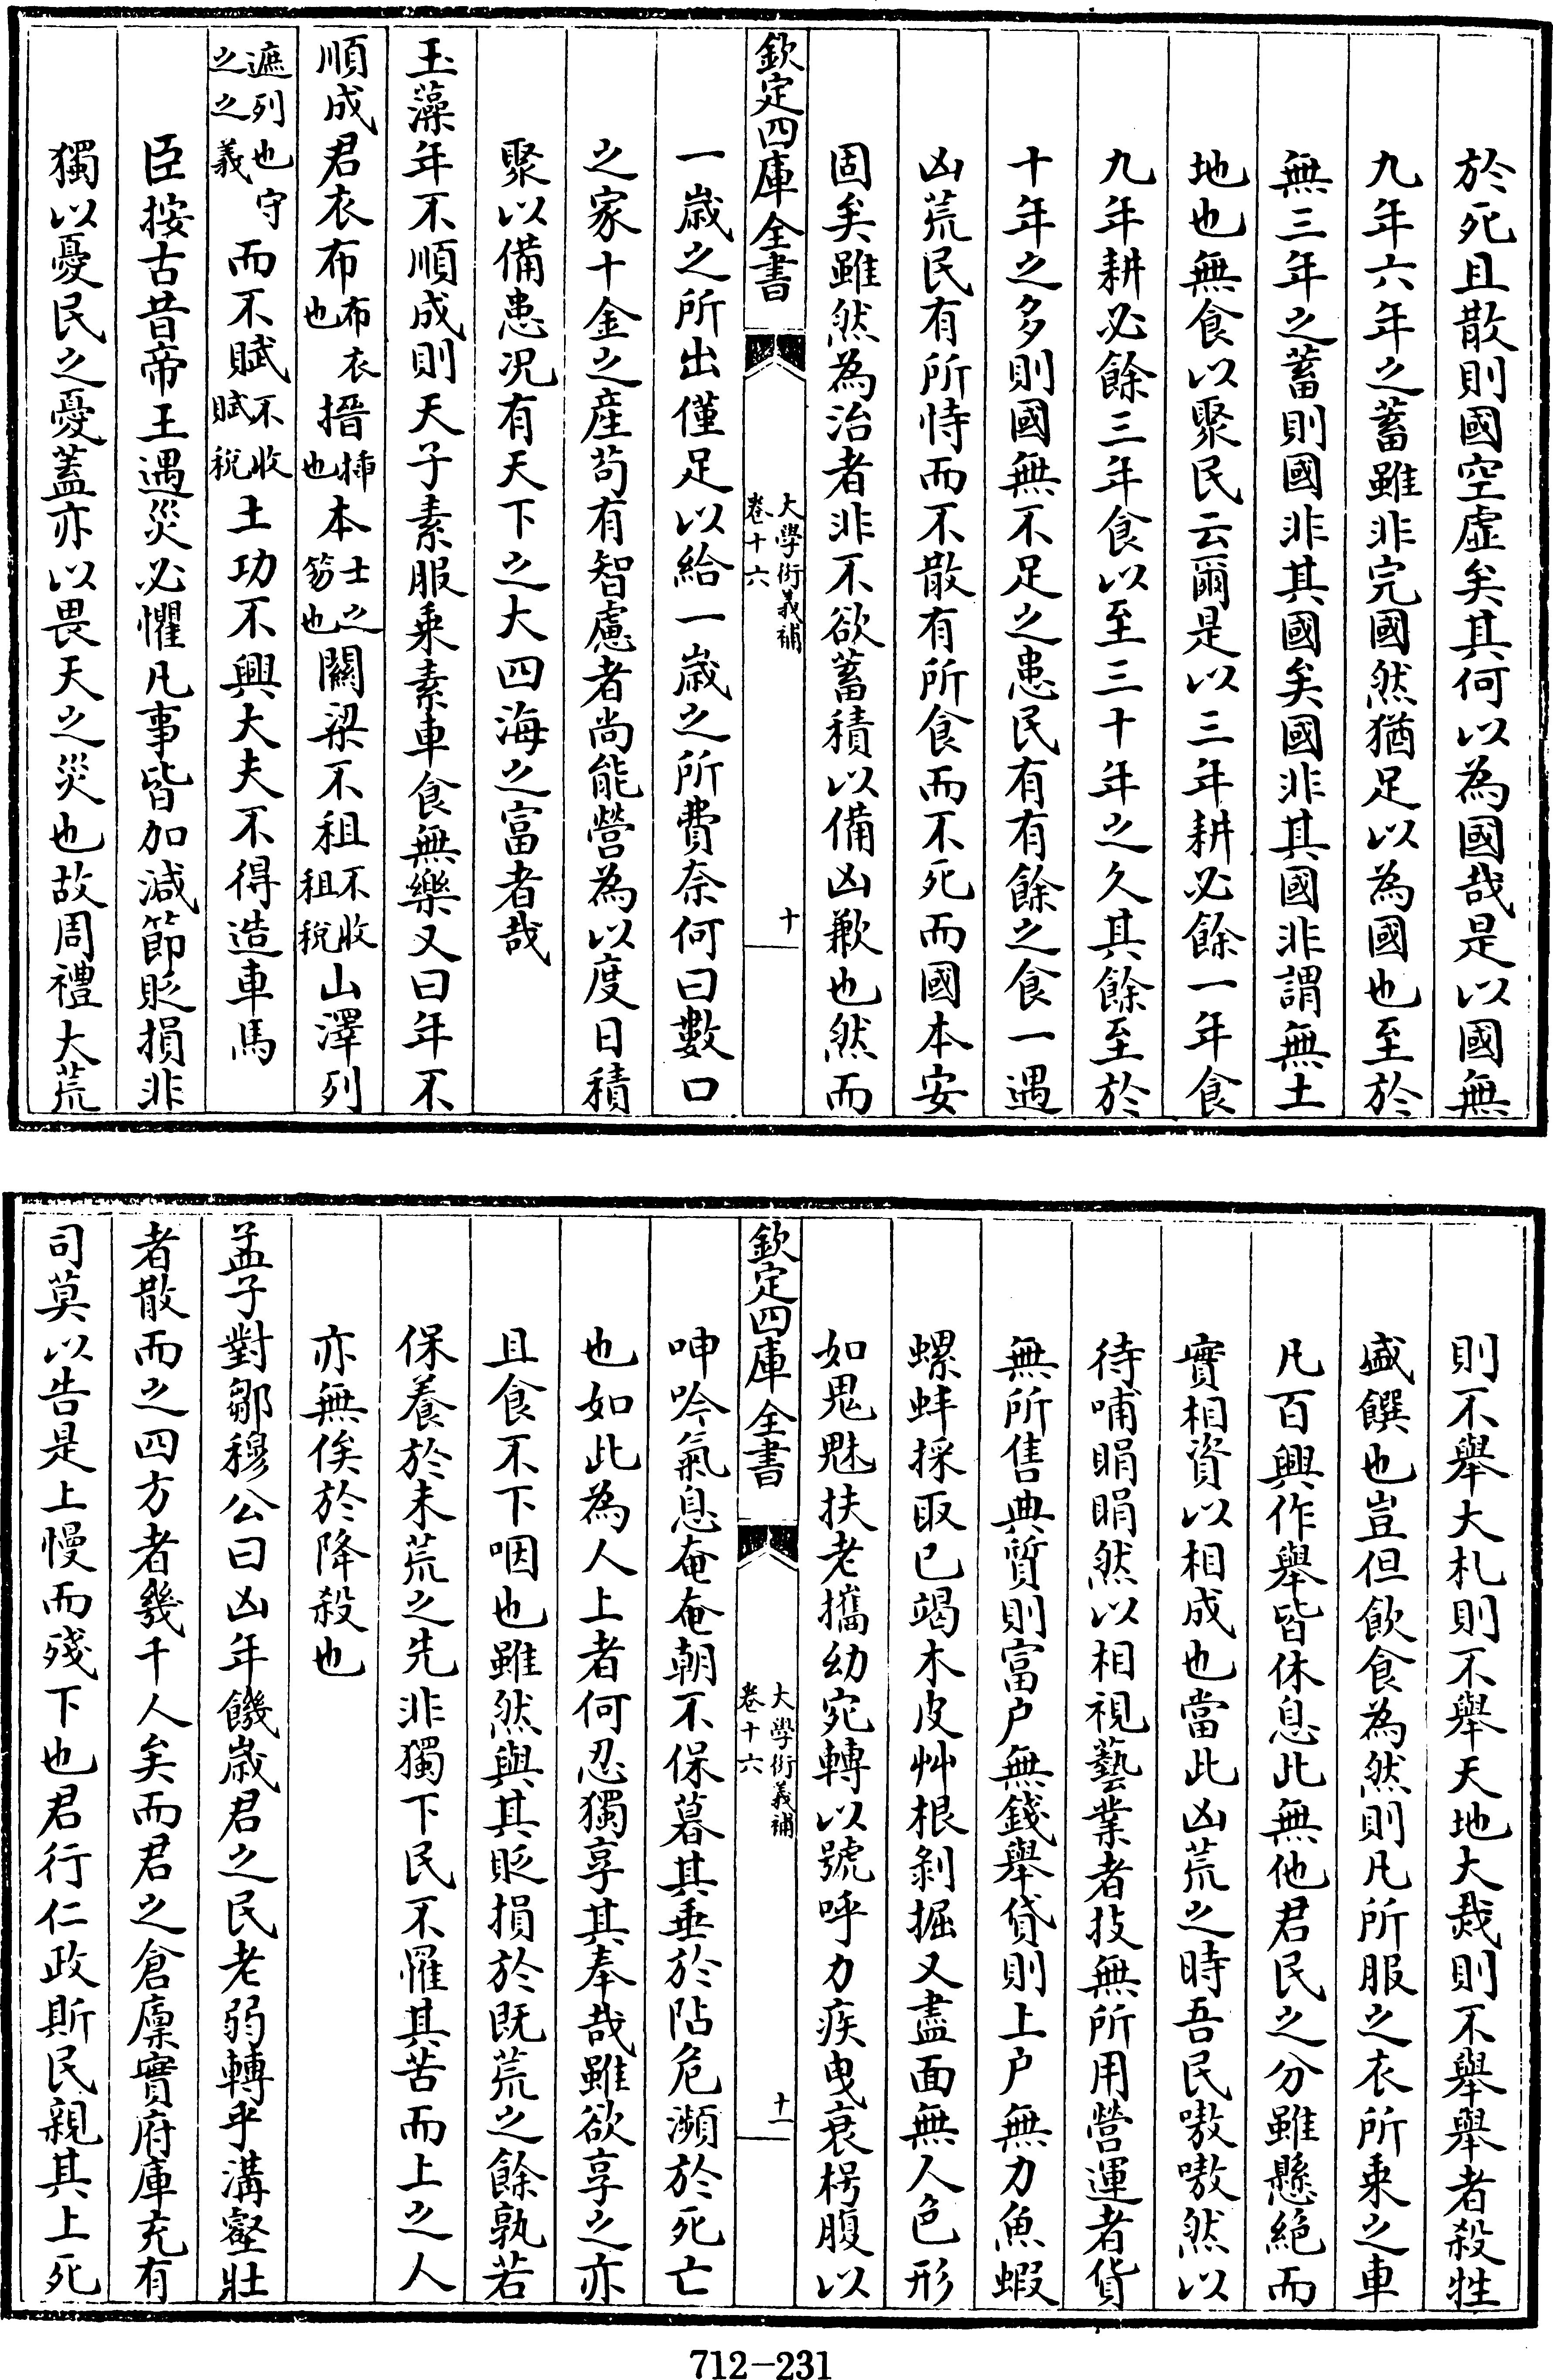 於死且散則國空虛矣其何以為國哉是以國無
九年六年之蓄雖非完國然猶足以為國也至於
無三年之蓄則國非其國矣國非其國非謂無土
地也無食以聚民云爾是以三年耕必餘一年食
九年耕必餘三年食以至三十年之久其餘至於
十年之多則國無不足之患民有有餘之食一遇
凶荒民有所恃而不散有所食而不死而國本安
固矣雖然為治者非不欲蓄積以備凶歉也然而
欽定四庫全書
大學衍義補
卷十六
十
一歲之所出僅足以給一歲之所費奈何曰數口
之家十金之産苟有智慮者尚能營為以度日積
聚以備患况有天下之大四海之富者哉
玉藻年不順成則天子素服乘素車食無樂又曰年不
順成君衣布布衣也搢揷也本士之笏也關梁不租不收租稅山澤列
遮列也守之之義而不賦不收賦稅土功不興大夫不得造車馬
臣按古昔帝王遇災必懼凡事皆加減節貶損非
獨以憂民之憂蓋亦以畏天之災也故周禮大荒
則不舉大札則不舉天地大烖則不舉舉者殺牲
盛饌也豈但飲食為然則凡所服之衣所乘之車
凡百興作舉皆休息此無他君民之分雖懸絶而
實相資以相成也當此凶荒之時吾民嗷嗷然以
待哺睊睊然以相視藝業者技無所用營運者貨
無所售典質則富户無錢舉貸則上户無力魚蝦
螺蚌採取已竭木皮艸根剝掘又盡面無人色形
如鬼魅扶老攜幼宛轉以號呼力疾曳衰枵腹以
欽定四庫全書
大學衍義補
卷十六
十一
呻吟氣息奄奄朝不保暮其垂於阽危瀕於死亡
也如此為人上者何忍獨享其奉哉雖欲享之亦
且食不下咽也雖然與其貶損於既荒之餘孰若
保養於未荒之先非獨下民不罹其苦而上之人
亦無俟於降殺也
孟子對鄒穆公曰凶年饑歲君之民老弱轉乎溝壑壯
者散而之四方者幾千人矣而君之倉廩實府庫充有
司莫以告是上慢而殘下也君行仁政斯民親其上死
712-231